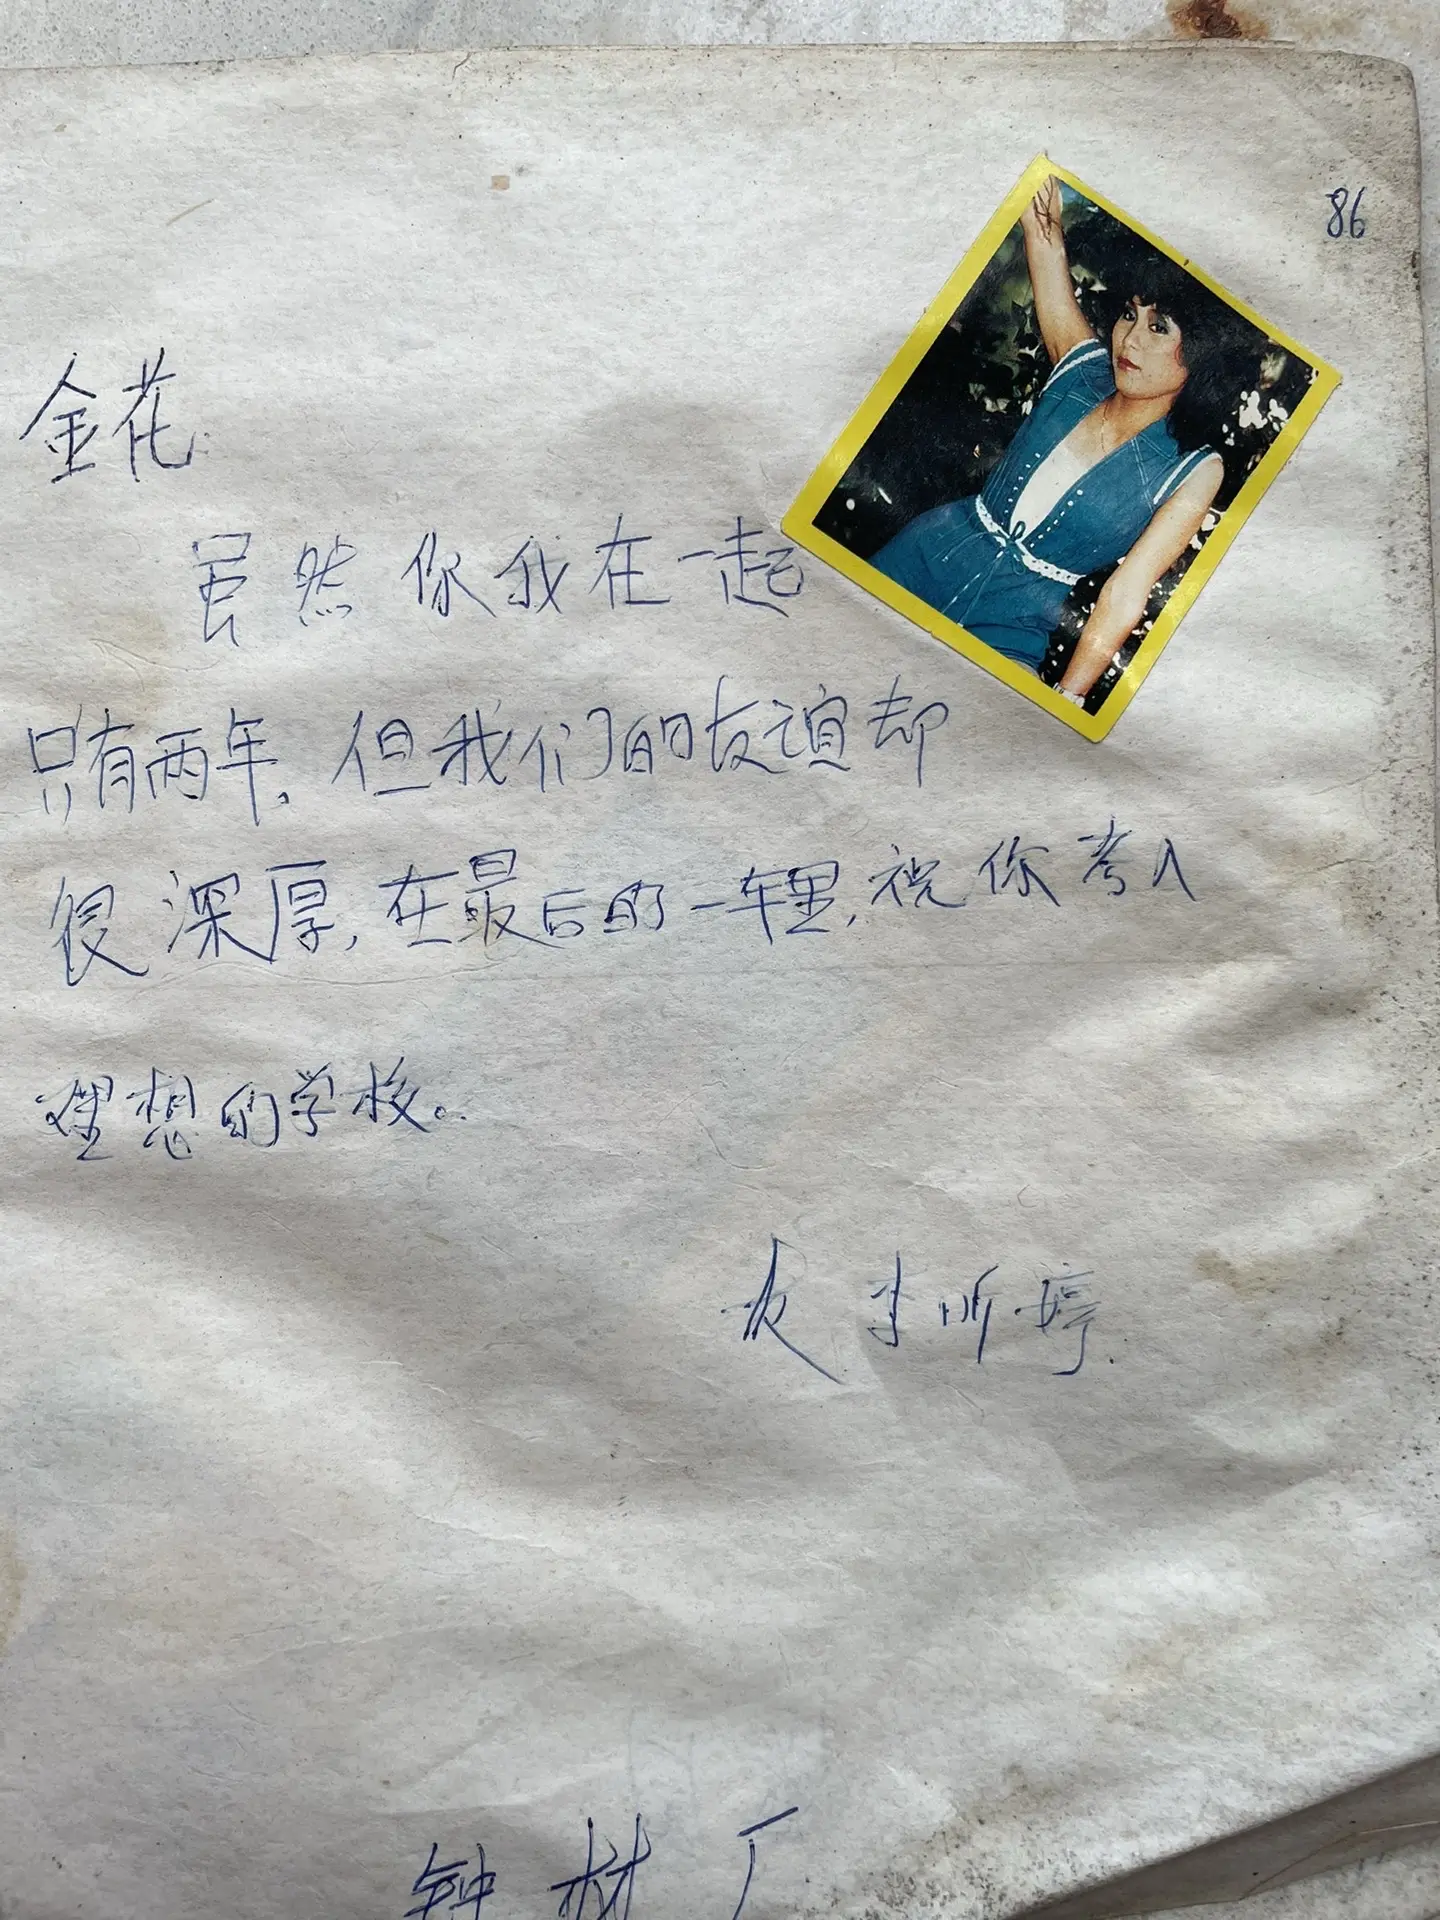 86
金花
虽然你我在一起
只有两年,但我们的友谊却
很深厚,在最后的一年里,祝你考入
理想的学校。
友 李昕婷
材厂